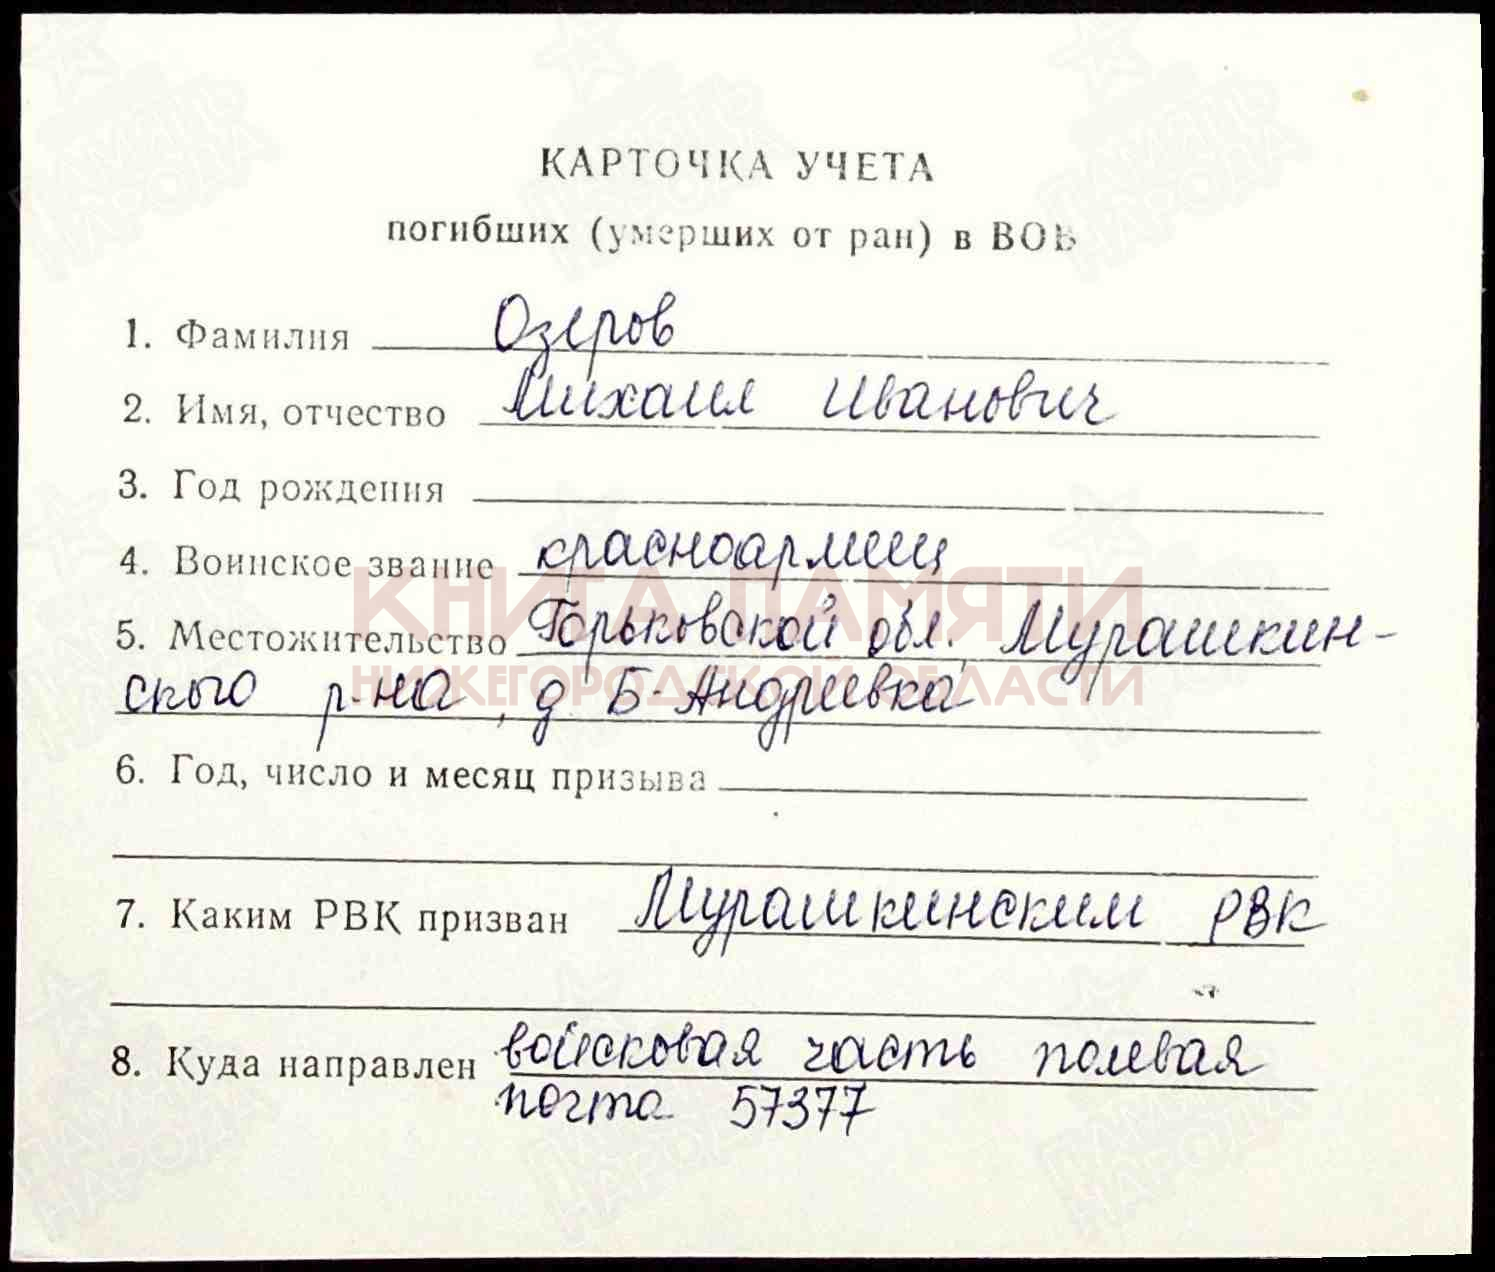 КАРТОЧКА УЧЕТА
погибших (умерших от ран) в ВОВ
1. Фамилия Озеров
2. Имя, отчество Михаил Иванович
3. Год рождения
4. Воинское звание красноармеец
КНИГА ПАМЯТИ
5. Местожительство Горьковской обл. Мурашкин-
НИЖЕГОРОДСКОЙ ОБЛАСТИ
ского р-на, д Б-Андреевка
6. Год, число и месяц призыва
7. Каким РВК призван Мурашкинским РВК
8. Куда направлен войсковая часть полевая
почта 57377
ПАМЯТЬ
НАРОДА